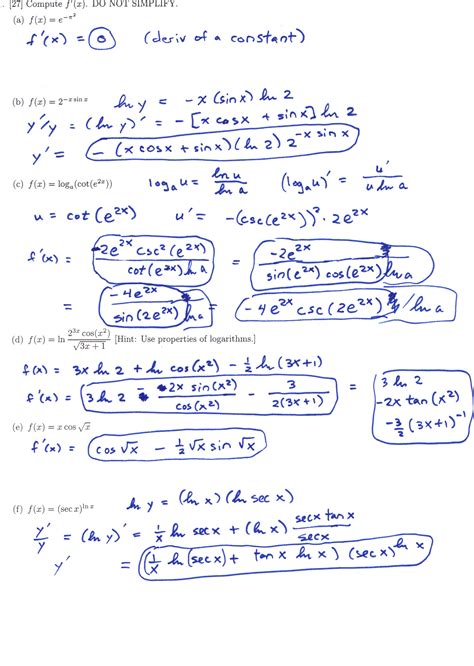 . [27] Compute f'(x). DO NOT SIMPLIFY.
(a) f(x) = e^{-π^2}
f'(x) = 0 (deriv of a constant)
(b) f(x) = 2^{-x sin x} ln y = -x (sin x) ln 2
y'/y = (ln y)' = -[x cos x + sin x] ln 2
y' = -(x cos x + sin x)(ln 2) 2^{-x sin x}
(c) f(x) = log_a(cot(e^{2x})) log_a u = ln u / ln a (log_a u)' = u' / u ln a
u = cot (e^{2x}) u' = -(csc(e^{2x}))^2 · 2e^{2x}
f'(x) = -2e^{2x} csc^2(e^{2x}) / cot(e^{2x}) ln a = -2e^{2x} / sin(e^{2x}) cos(e^{2x}) ln a
= -4e^{2x} / sin(2e^{2x}) ln a = -4e^{2x} csc(2e^{2x}) / ln a
(d) f(x) = ln 2^{3x} cos(x^2) / √(3x + 1) [Hint: Use properties of logarithms.]
f(x) = 3x ln 2 + ln cos(x^2) - 1/2 ln (3x+1)
f'(x) = 3 ln 2 - 2x sin(x^2) / cos(x^2) - 3 / 2(3x+1) = 3 ln 2 -2x tan(x^2) -3/2 (3x+1)^{-1}
(e) f(x) = x cos √x
f'(x) = cos √x - 1/2 √x sin √x
(f) f(x) = (sec x)^{ln x} ln y = (ln x)(ln sec x)
y'/y = (ln y)' = 1/x ln sec x + (ln x) sec x tan x / sec x
y' = (1/x ln(sec x) + tan x ln x) (sec x)^{ln x}